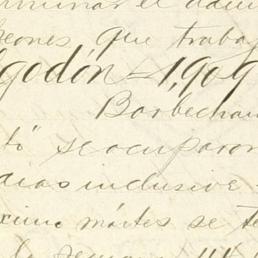 terminar el
peones que trabaj
lgodón - 1,909
Barbechan
tó" se ocuparon
dias inclusive
ximo mártes se te
la semana